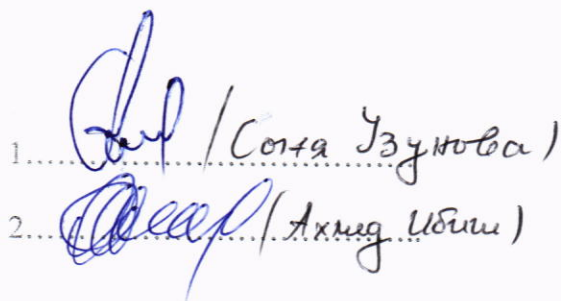 1. /(Соня Узунова)
2. /(Ахмед Ибиш)